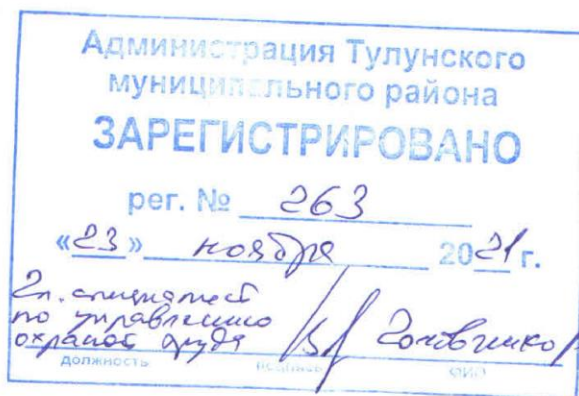 Администрация Тулунского
муниципального района
ЗАРЕГИСТРИРОВАНО
рег. № 263
«23» ноября 2021 г.
Гл. специалист
по управлению
охраной труда
должность подпись ФИО